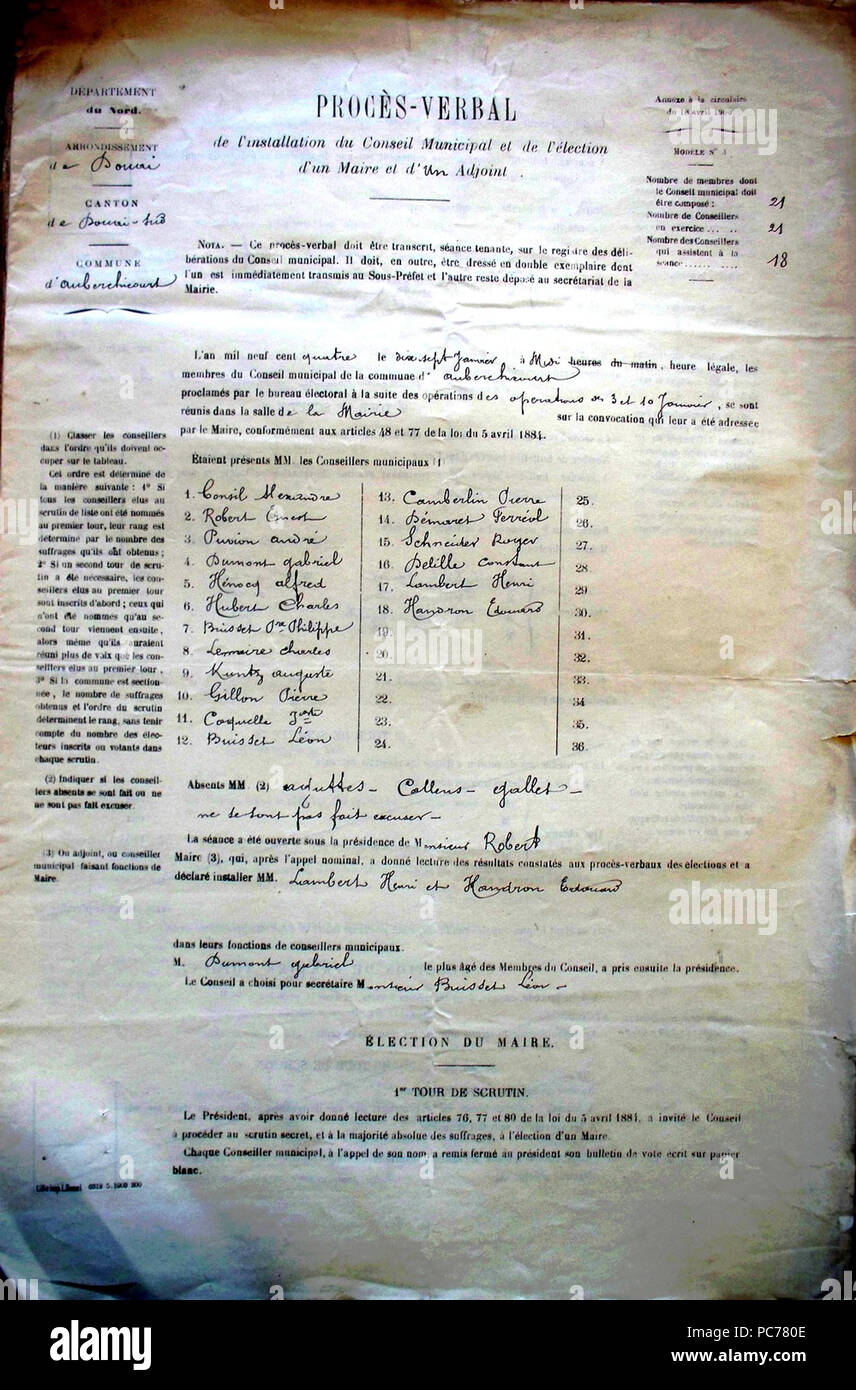 DÉPARTEMENT
du Nord.
ARRONDISSEMENT
de Douai
CANTON
de Douai-Sud
COMMUNE
d'Auberchicourt
PROCÈS-VERBAL
de l'installation du Conseil Municipal et de l'élection
d'un Maire et d'un Adjoint
Annexe à la circulaire
du 18 avril
MODÈLE N°
Nombre de membres dont
le Conseil municipal doit
être composé : 21
Nombre de Conseillers
en exercice ..... 21
Nombre des Conseillers
qui assistent à la
séance ..... 18
NOTA. — Ce procès-verbal doit être transcrit, séance tenante, sur le registre des déli-
bérations du Conseil municipal. Il doit, en outre, être dressé en double exemplaire dont
l'un est immédiatement transmis au Sous-Préfet et l'autre reste déposé au secrétariat de la
Mairie.
L'an mil neuf cent quatre le dix sept Janvier, à Midi heures du matin, heure légale, les
membres du Conseil municipal de la commune d'Auberchicourt
proclamés par le bureau électoral à la suite des opérations des opérations des 3 et 10 Janvier, se sont
réunis dans la salle de la Mairie sur la convocation qui leur a été adressée
par le Maire, conformément aux articles 48 et 77 de la loi du 5 avril 1884.
Étaient présents MM. les Conseillers municipaux (1
1. Consil Alexandre
2. Robert Ernest
3. Puvion André
4. Dumont Gabriel
5. Hénocq Alfred
6. Hubert Charles
7. Buisset Philippe
8. Lemaire Charles
9. Kuntz Auguste
10. Gillon Pierre
11. Coquelle
12. Buisset Léon
13. Camberlin Pierre
14. Démaret Ferréol
15. Schneider Roger
16. Delille Constant
17. Lambert Henri
18. Handron Edouard
19.
20.
21.
22.
23.
24.
25.
26.
27.
28.
29.
30.
31.
32.
33.
34
35.
36.
(1) Classer les conseillers
dans l'ordre qu'ils doivent oc-
cuper sur le tableau.
Cet ordre est déterminé de
la manière suivante : 1° Si
tous les conseillers élus au
scrutin de liste ont été nommés
au premier tour, leur rang est
déterminé par le nombre des
suffrages qu'ils ont obtenus ;
2° Si un second tour de scru-
tin a été nécessaire, les con-
seillers élus au premier tour
sont inscrits d'abord ; ceux qui
n'ont été nommés qu'au se-
cond tour viennent ensuite,
alors même qu'ils auraient
réuni plus de voix que les con-
seillers élus au premier tour,
3° Si la commune est section-
née, le nombre de suffrages
obtenus et l'ordre du scrutin
déterminent le rang, sans tenir
compte du nombre des élec-
teurs inscrits ou votants dans
chaque scrutin.
(2) Indiquer si les conseil-
lers absents se sont fait ou ne
ne sont pas fait excuser.
Absents MM. (2) Callens - Gallet -
ne se sont pas fait excuser -
La séance a été ouverte sous la présidence de Monsieur Robert
(3) Ou adjoint, ou conseiller
municipal faisant fonctions de
Maire.
Maire (3), qui, après l'appel nominal, a donné lecture des résultats constatés aux procès-verbaux des élections et a
déclaré installer MM. Lambert Henri et Handron Edouard
dans leurs fonctions de conseillers municipaux.
M. Dumont Gabriel le plus âgé des Membres du Conseil, a pris ensuite la présidence.
Le Conseil a choisi pour secrétaire Monsieur Buisset Léon -
ÉLECTION DU MAIRE.
1er TOUR DE SCRUTIN.
Le Président, après avoir donné lecture des articles 76, 77 et 80 de la loi du 5 avril 1884, a invité le Conseil
à procéder au scrutin secret, et à la majorité absolue des suffrages, à l'élection d'un Maire.
Chaque Conseiller municipal, à l'appel de son nom, a remis fermé au président son bulletin de vote écrit sur papier
blanc.
alamy
alamy
Image ID: PC780E
www.alamy.com